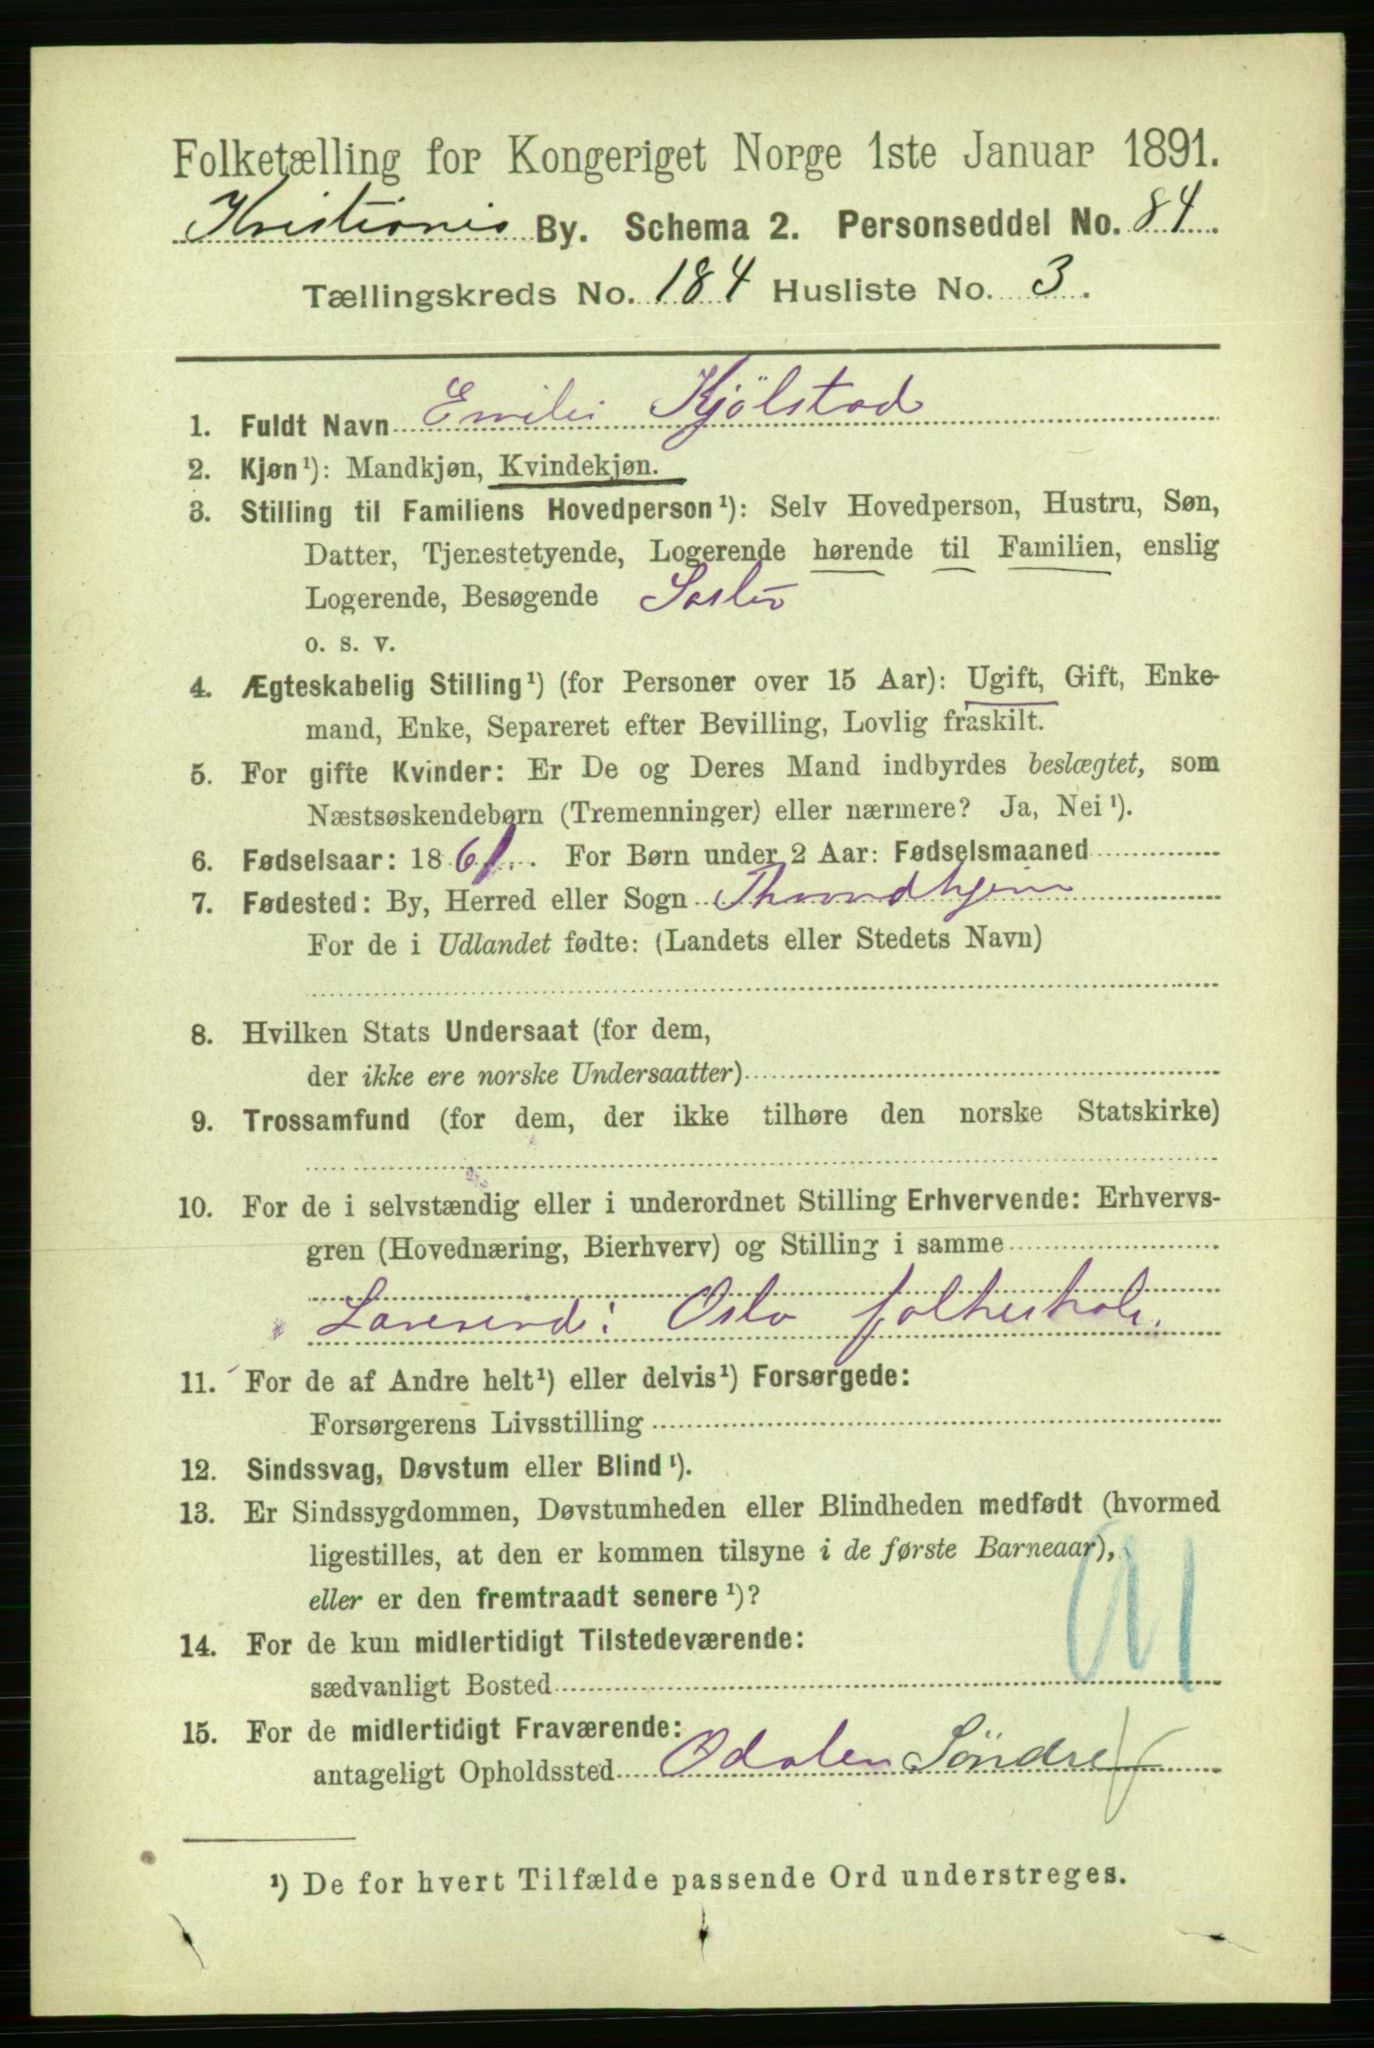 Folketælling for Kongeriget Norge 1ste Januar 1891.
Kristiania By. Schema 2. Personseddel No. 84.
Tællingskreds No. 184 Husliste No. 3.
1. Fuldt Navn Emilie Kjölstad
2. Kjøn¹): Mandkjøn, Kvindekjøn.
3. Stilling til Familiens Hovedperson¹): Selv Hovedperson, Hustru, Søn,
Datter, Tjenestetyende, Logerende hørende til Familien, enslig
Logerende, Besøgende Søster
o. s. v.
4. Ægteskabelig Stilling¹) (for Personer over 15 Aar): Ugift, Gift, Enke-
mand, Enke, Separeret efter Bevilling, Lovlig fraskilt.
5. For gifte Kvinder: Er De og Deres Mand indbyrdes beslægtet, som
Næstsøskendebørn (Tremenninger) eller nærmere? Ja, Nei¹).
6. Fødselsaar: 1861. For Børn under 2 Aar: Fødselsmaaned
7. Fødested: By, Herred eller Sogn Throndhjem
For de i Udlandet fødte: (Landets eller Stedets Navn)
8. Hvilken Stats Undersaat (for dem,
der ikke ere norske Undersaatter)
9. Trossamfund (for dem, der ikke tilhøre den norske Statskirke)
10. For de i selvstændig eller i underordnet Stilling Erhvervende: Erhvervs-
gren (Hovednæring, Bierhverv) og Stilling i samme
Lærerinde: Oslo folkeskole.
11. For de af Andre helt¹) eller delvis¹) Forsørgede:
Forsørgerens Livsstilling
12. Sindssvag, Døvstum eller Blind¹).
13. Er Sindssygdommen, Døvstumheden eller Blindheden medfødt (hvormed
ligestilles, at den er kommen tilsyne i de første Barneaar),
eller er den fremtraadt senere¹)?
14. For de kun midlertidigt Tilstedeværende:
sædvanligt Bosted
15. For de midlertidigt Fraværende:
antageligt Opholdssted Odalen Söndre
¹) De for hvert Tilfælde passende Ord understreges.